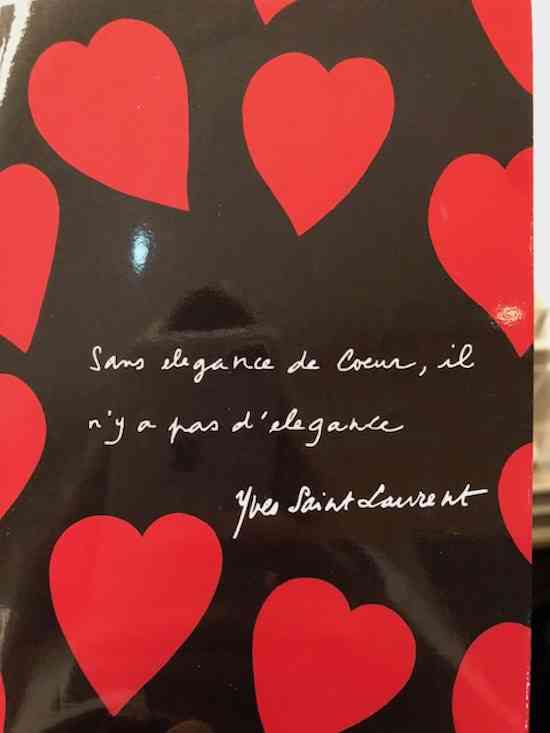 Sans elegance de Coeur, il
n'y a pas d'elegance
Yves Saint Laurent